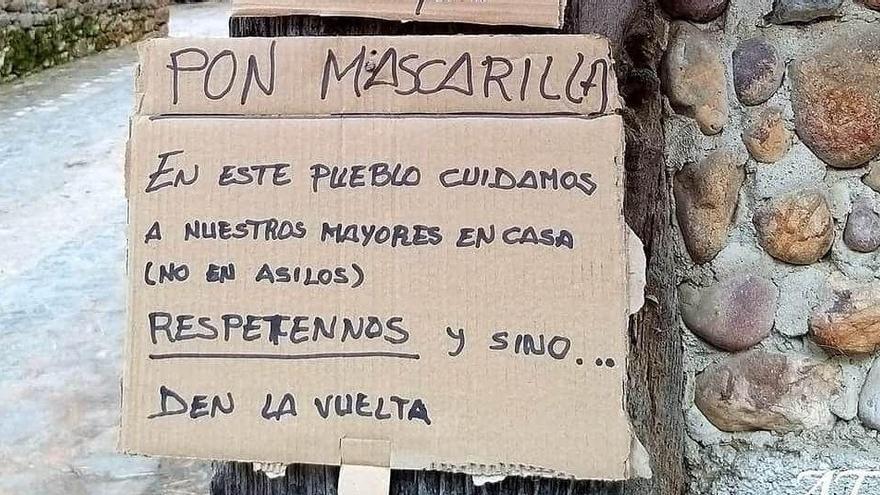 PON MASCARILLA
EN ESTE PUEBLO CUIDAMOS
A NUESTROS MAYORES EN CASA
(NO EN ASILOS)
RESPETENNOS Y SINO...
DEN LA VUELTA